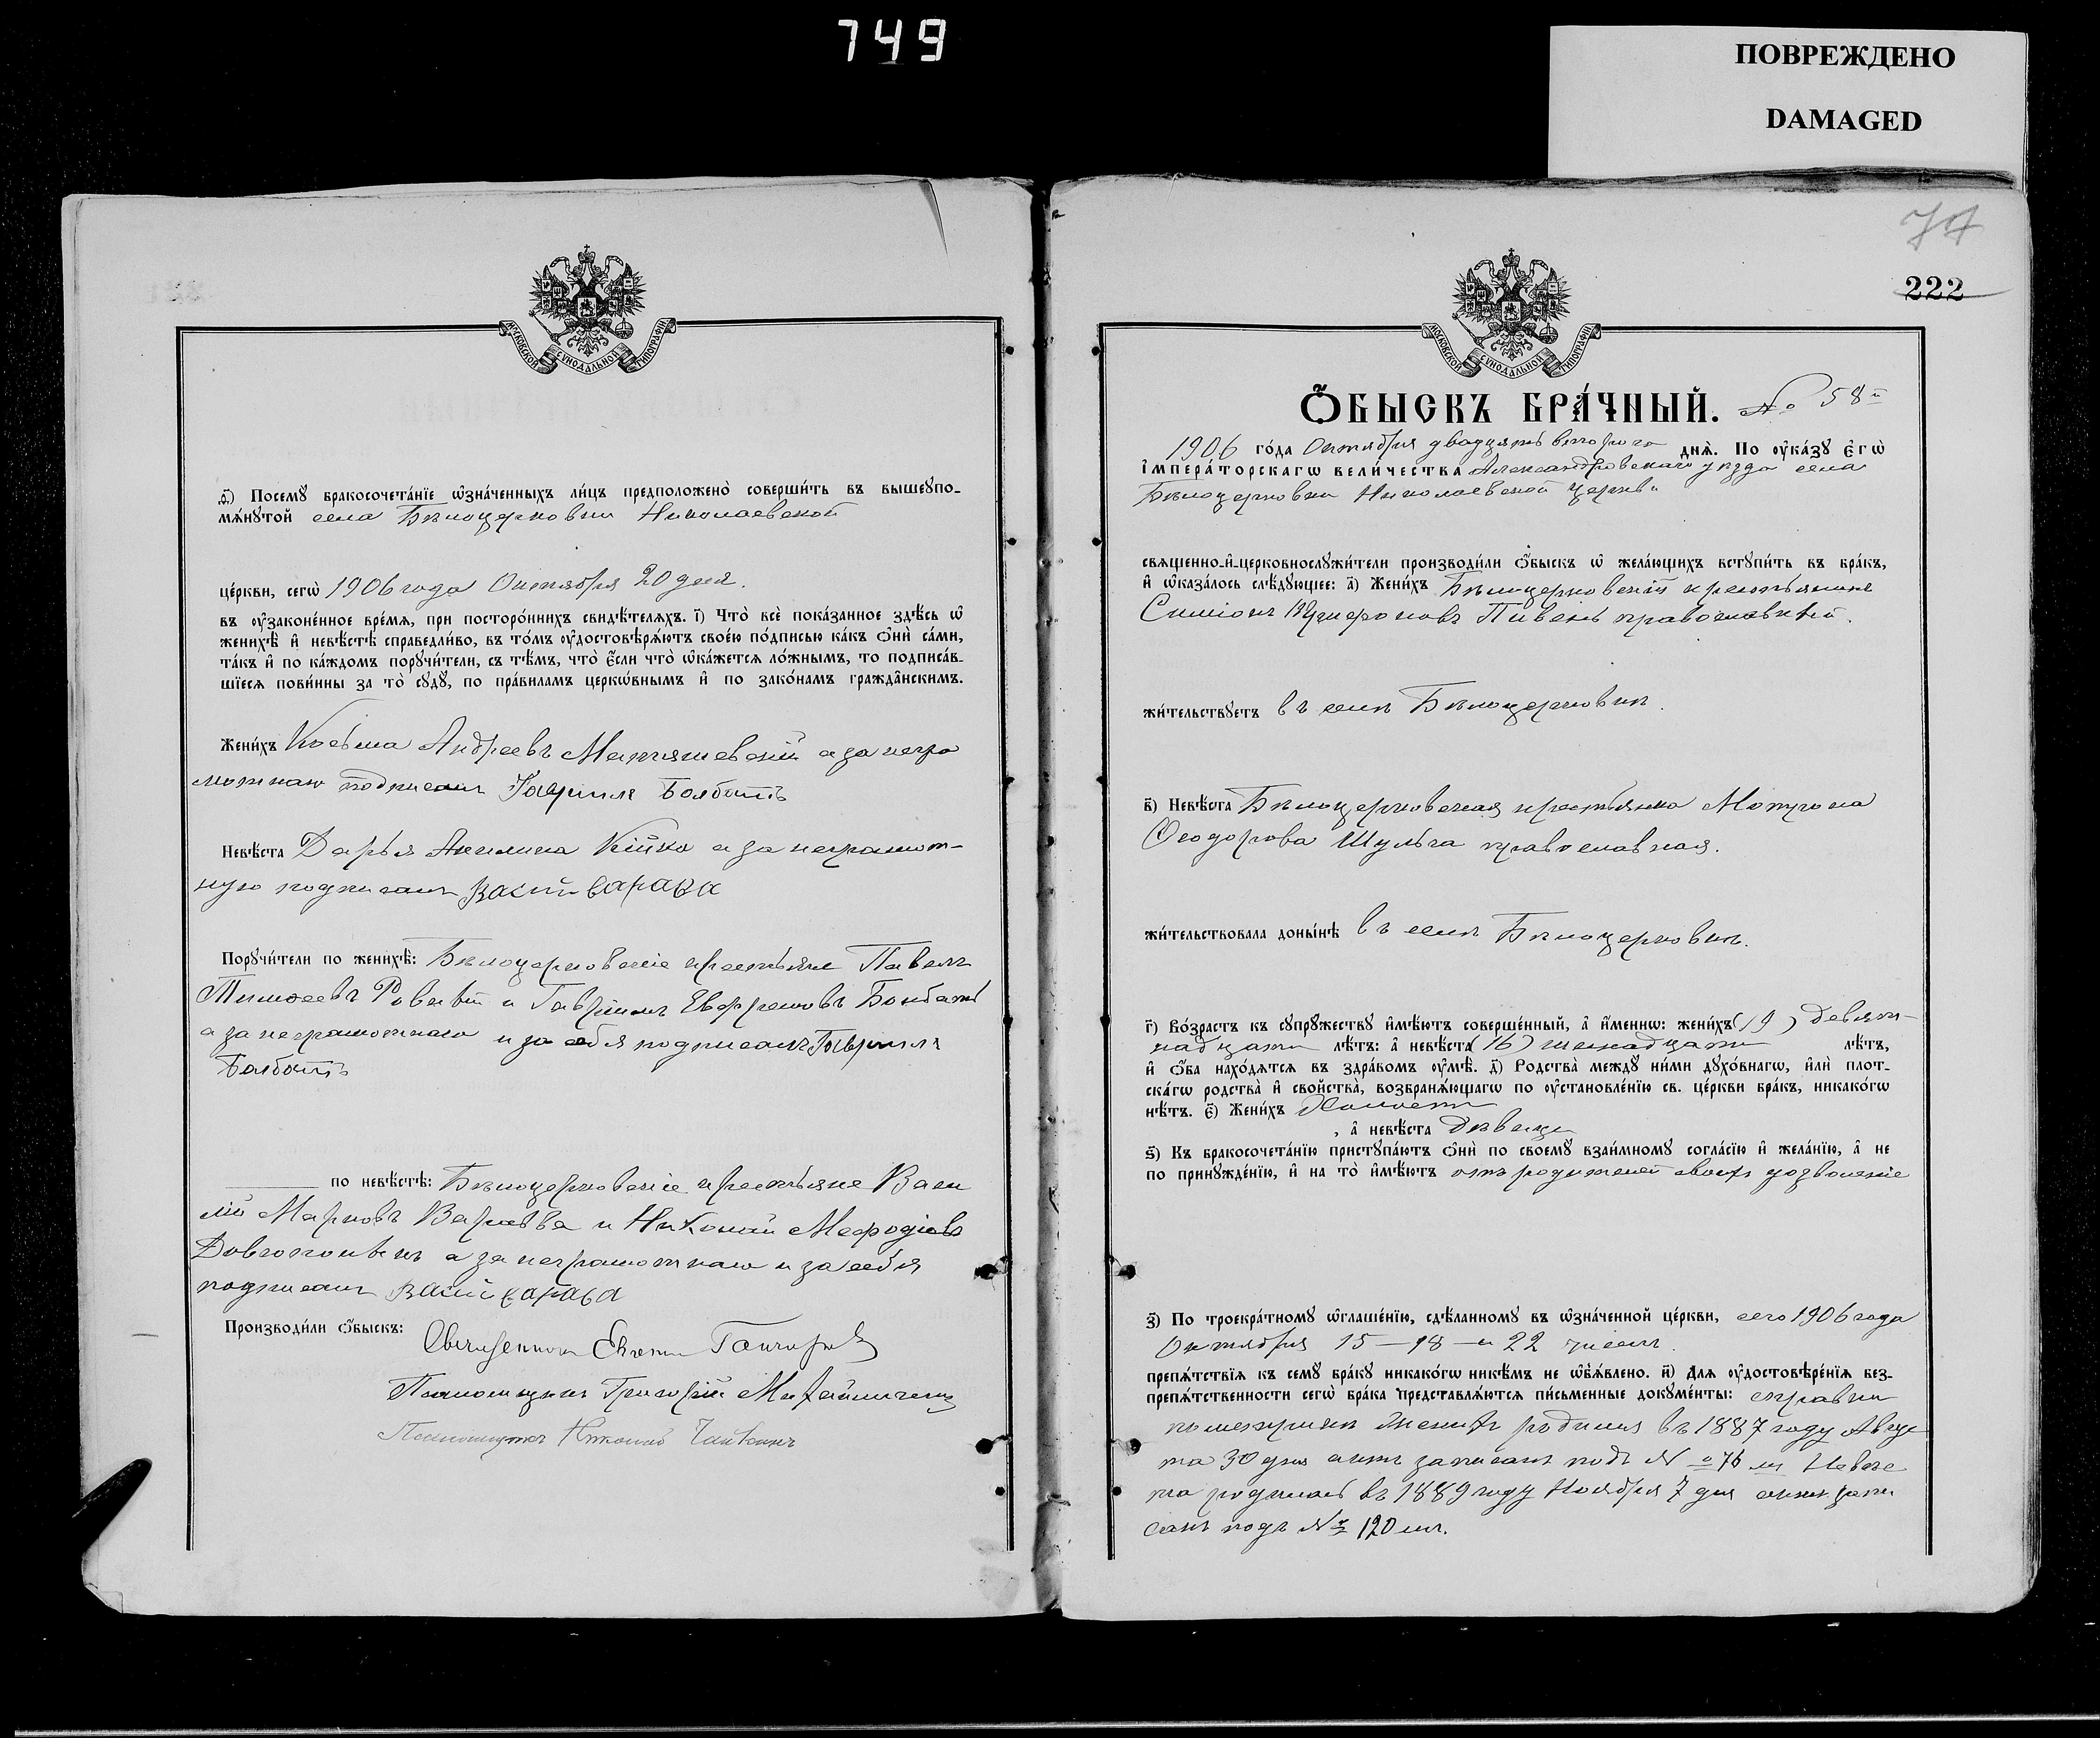 749
ПОВРЕЖДЕНО
DAMAGED
МОСКОВСКОЙ СУНОДАЛЬНОЙ ТИПОГРАФІИ
ѳ҃) Посемꙋ̀ бракосочета́нїе ѡ҆зна́ченныхъ ли́цъ предположено̀ соверши́ть въ вышеꙋпо-
мѧ́нꙋтой села Бѣлоцерковки Николаевской
це́ркви, сегѡ̀ 1906 года Октября 20 дня.
въ ᲂу҆зако́ненное вре́мѧ, при посторо́ннихъ свидѣ́телѧхъ. і҃) Что̀ всѐ пока́занное здѣ́сь ѡ҆
женихѣ̀ и҆ невѣ́стѣ справедли́во, въ то́мъ ᲂу҆достовѣрѧ́ютъ свое́ю по́дписью ка́къ ѻ҆нѝ са́ми,
та́къ и҆ по ка́ждомъ порꙋчи́тели, съ тѣ́мъ, что̀ є҆́сли что̀ ѡ҆ка́жетсѧ ло́жнымъ, то подписа́в-
шїесѧ пови́нны за то̀ сꙋдꙋ̀, по пра́виламъ церко́внымъ и҆ по зако́намъ гражда́нскимъ.
Жени́хъ Косьма Андреевъ Матяшевскій а за негра
мотнаго подписалъ Гавриилъ Болбатъ
Невѣ́ста Дарья Акилина Кійко а за неграмот-
ную подписалъ Васий Варава
Порꙋчи́тели по женихѣ̀: Бѣлоцерковскіе крестьяне Павелъ
Тимоѳеевъ и Гавриилъ Евфремовъ Болбатъ
а за неграмотнаго и за себя подписалъ Гавриилъ
Болбатъ
по невѣ́стѣ: Бѣлоцерковскіе крестьяне Васи
лій Марковъ Варавва и Николай Меѳодіевъ
а за неграмотнаго и за себя
подписалъ Васий Варава
Производи́ли ѻ҆́быскъ:
Священникъ Гончаровъ
Псаломщикъ Григорій Михайличенко
Псаломщикъ Николай
74
222
МОСКОВСКОЙ СУНОДАЛЬНОЙ ТИПОГРАФІИ
Ѻ҆́БЫСКЪ БРА́ЧНЫЙ. № 58й
1906 го́да Октября двадцать второго днѧ̀. По ᲂу҆ка́зꙋ Є҆гѡ̀
І҆мпера́торскагѡ вели́чества Александровскаго уѣзда села
Бѣлоцерковки Николаевской церкви
свѧщенно-и҆-церковнослꙋжи́тели производи́ли ѻ҆́быскъ ѡ҆ жела́ющихъ встꙋпи́ть въ бра́къ,
и҆ ѡ҆каза́лось слѣ́дꙋющее: а҃) Жени́хъ Бѣлоцерковскій крестьянинъ
Симіонъ Никифоровъ Пивень православный.
жи́тельствꙋетъ въ селѣ Бѣлоцерковкѣ.
в҃) Невѣ́ста Бѣлоцерковская крестьянка Мотрона
Ѳеодорова Шульга православная.
жи́тельствовала доны́нѣ въ селѣ Бѣлоцерковкѣ.
г҃) Во́зрастъ къ сꙋпрꙋ́жествꙋ и҆мѣ́ютъ соверше́нный, а҆ и҆́меннѡ: жени́хъ (19) девят-
надцати лѣ́тъ: а҆ невѣ́ста (16) шестнадцати лѣ́тъ,
и҆ ѻ҆́ба нахо́дѧтсѧ въ здра́вомъ ᲂу҆мѣ̀. д҃) Родства̀ междꙋ̀ ни́ми дꙋхо́внагѡ, и҆лѝ плот-
ска́гѡ родства̀ и҆ сво́йства̀, возбранѧ́ющагѡ по ᲂу҆становле́нїю св. це́ркви бра́къ, никако́гѡ
нѣ́тъ. є҃) Жени́хъ Холостъ
, а҆ невѣ́ста Дѣвица
ѕ҃) Къ бракосочета́нїю пристꙋпа́ютъ ѻ҆нѝ по своемꙋ̀ взаи́мномꙋ согла́сїю и҆ жела́нїю, а҆ не
по принꙋжде́нїю, и҆ на то̀ и҆мѣ́ютъ отъ родителей своихъ дозволеніе
з҃) По троекра́тномꙋ ѡ҆глаше́нїю, сдѣ́ланномꙋ въ ѡ҆зна́ченной це́ркви, сего 1906 года
Октября 15 — 18 — и 22 чиселъ.
препѧ́тствїѧ къ семꙋ̀ бра́кꙋ никако́гѡ никѣ́мъ не ѡ҆б̾ѧ́влено. и҃) Для ᲂу҆достовѣре́нїѧ без-
препѧ́тственности сегѡ̀ бра́ка представлѧ́ютсѧ пи́сьменные докꙋме́нты: справки
по метрикѣ Женихъ родился въ 1887 году Авгус
та 30 дня актъ записанъ подъ № 76 мъ Невѣс
та родилась въ 1889 году Ноября 7 дня актъ запи
санъ подъ № 120 мъ.